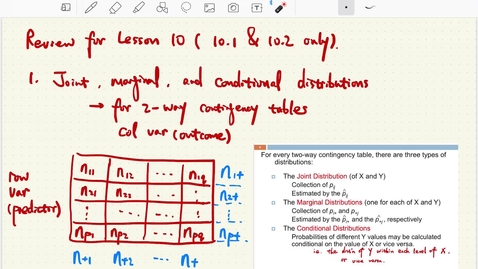 Review for Lesson 10 ( 10.1 & 10.2 only).
1. Joint, marginal, and conditional distributions
→ for 2-way contingency tables
col var (outcome)
row
var
(predictor)
n11 n12 ... n1q n1+
n21 n22 ... n2+
⋮ ... ... ⋮ ⋮
np1 np2 ... npq np+
n+1 n+2 ... n+
For every two-way contingency table, there are three types of
distributions:
The Joint Distribution (of X and Y)
Collection of pij
Estimated by the p̂ij
The Marginal Distributions (one for each of X and Y)
Collection of pi+ and p+j
Estimated by the p̂i+ and the p̂+j, respectively
The Conditional Distributions
Probabilities of different Y values may be calculated
conditional on the value of X or vice versa.
i.e. the distn of Y within each level of X,
or vice versa.